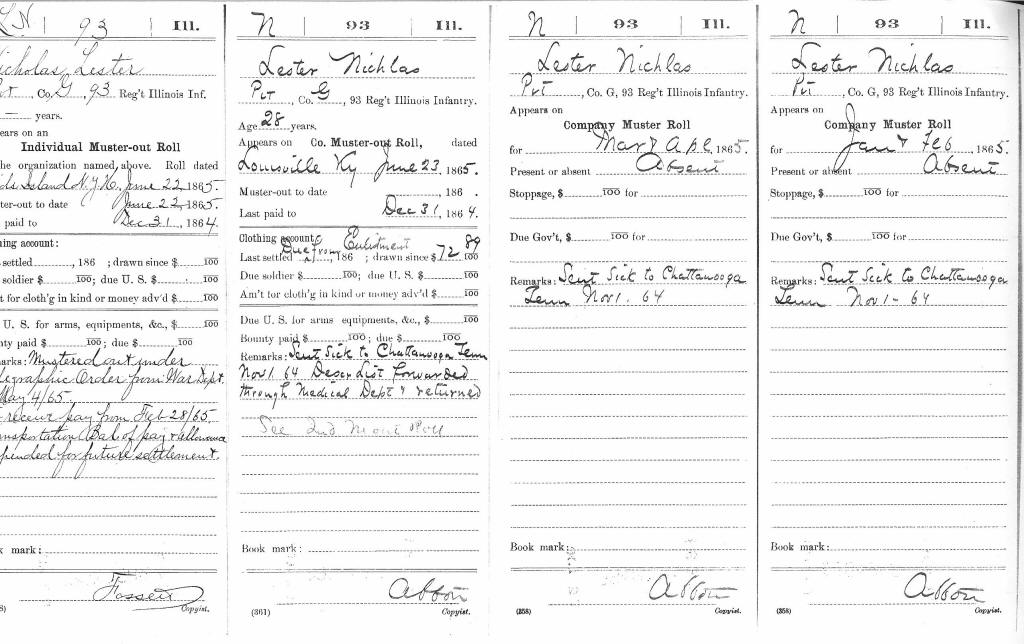 LN | 93 | Ill.
icholas Lester
, Co. G, 93 Reg't Illinois Inf.
— years.
ears on an
Individual Muster-out Roll
he organization named above. Roll dated
Island N.Y.H., June 22, 1865.
ter-out to date June 22, 1865.
paid to Dec 31, 1864.
ing account:
settled , 186 ; drawn since $ 100
soldier $ 100; due U. S. $ 100
t for cloth'g in kind or money adv'd $ 100
U. S. for arms, equipments, &c., $ 100
nty paid $ 100; due $ 100
arks: Mustered out under
legraphic Order from War Dept.
May 4/65.
receive pay from Feb 28/65
nsportation Bal of pay & allowance
pended for future settlement.
k mark:
Copyist.
N | 93 | Ill.
Lester Nichlas
Pvt , Co. G , 93 Reg't Illinois Infantry.
Age 28 years.
Appears on Co. Muster-out Roll, dated
Louisville Ky June 23, 1865.
Muster-out to date , 186 .
Last paid to Dec 31, 1864.
Clothing account:
Due from Enlistment
Last settled , 186 ; drawn since $ 72 89 100
Due soldier $ 100; due U. S. $ 100
Am't for cloth'g in kind or money adv'd $ 100
Due U. S. for arms equipments, &c., $ 100
Bounty paid $ 100; due $ 100
Remarks: Sent Sick to Chattanooga Tenn
Nov 1 64 Descr List forwarded
through Medical Dept & returned
See 2nd M out Roll
Book mark:
Abbott
(361) Copyist.
N | 93 | Ill.
Lester Nichlas
Pvt , Co. G, 93 Reg't Illinois Infantry.
Appears on
Company Muster Roll
for Mar & Apl , 1865.
Present or absent Absent
Stoppage, $ 100 for
Due Gov't, $ 100 for
Remarks: Sent Sick to Chattanooga
Tenn Nov 1. 64
Book mark:
Abbott
(358) Copyist.
N | 93 | Ill.
Lester Nichlas
Pvt , Co. G, 93 Reg't Illinois Infantry.
Appears on
Company Muster Roll
for Jan & Feb , 1865.
Present or absent Absent
Stoppage, $ 100 for
Due Gov't, $ 100 for
Remarks: Sent Sick to Chattanooga
Tenn Nov 1 - 64
Book mark:
Abbott
(358) Copyist.